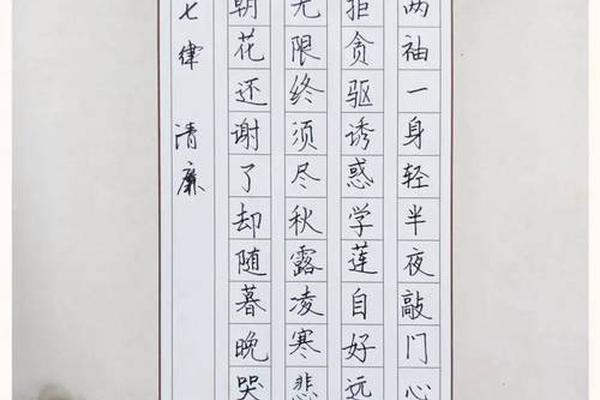 七律 清廉
朝花还谢了却随暮晚哭
无限终须尽秋露凌寒悲
拒贪驱诱惑学莲自好远
两袖一身轻半夜敲门心